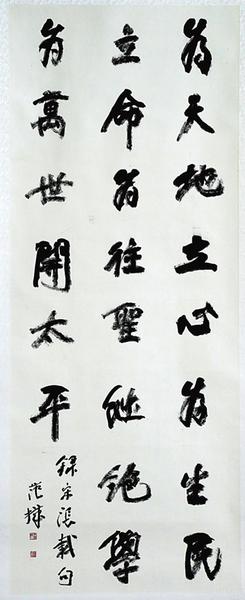 為天地立心為生民
立命為往聖繼絕學
為萬世開太平
錄宋張載句
范